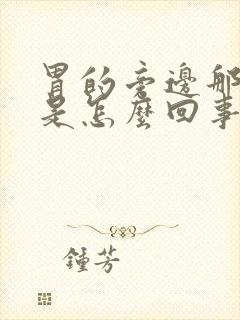 胃的旁邊那
是怎麼回事
鍾芳